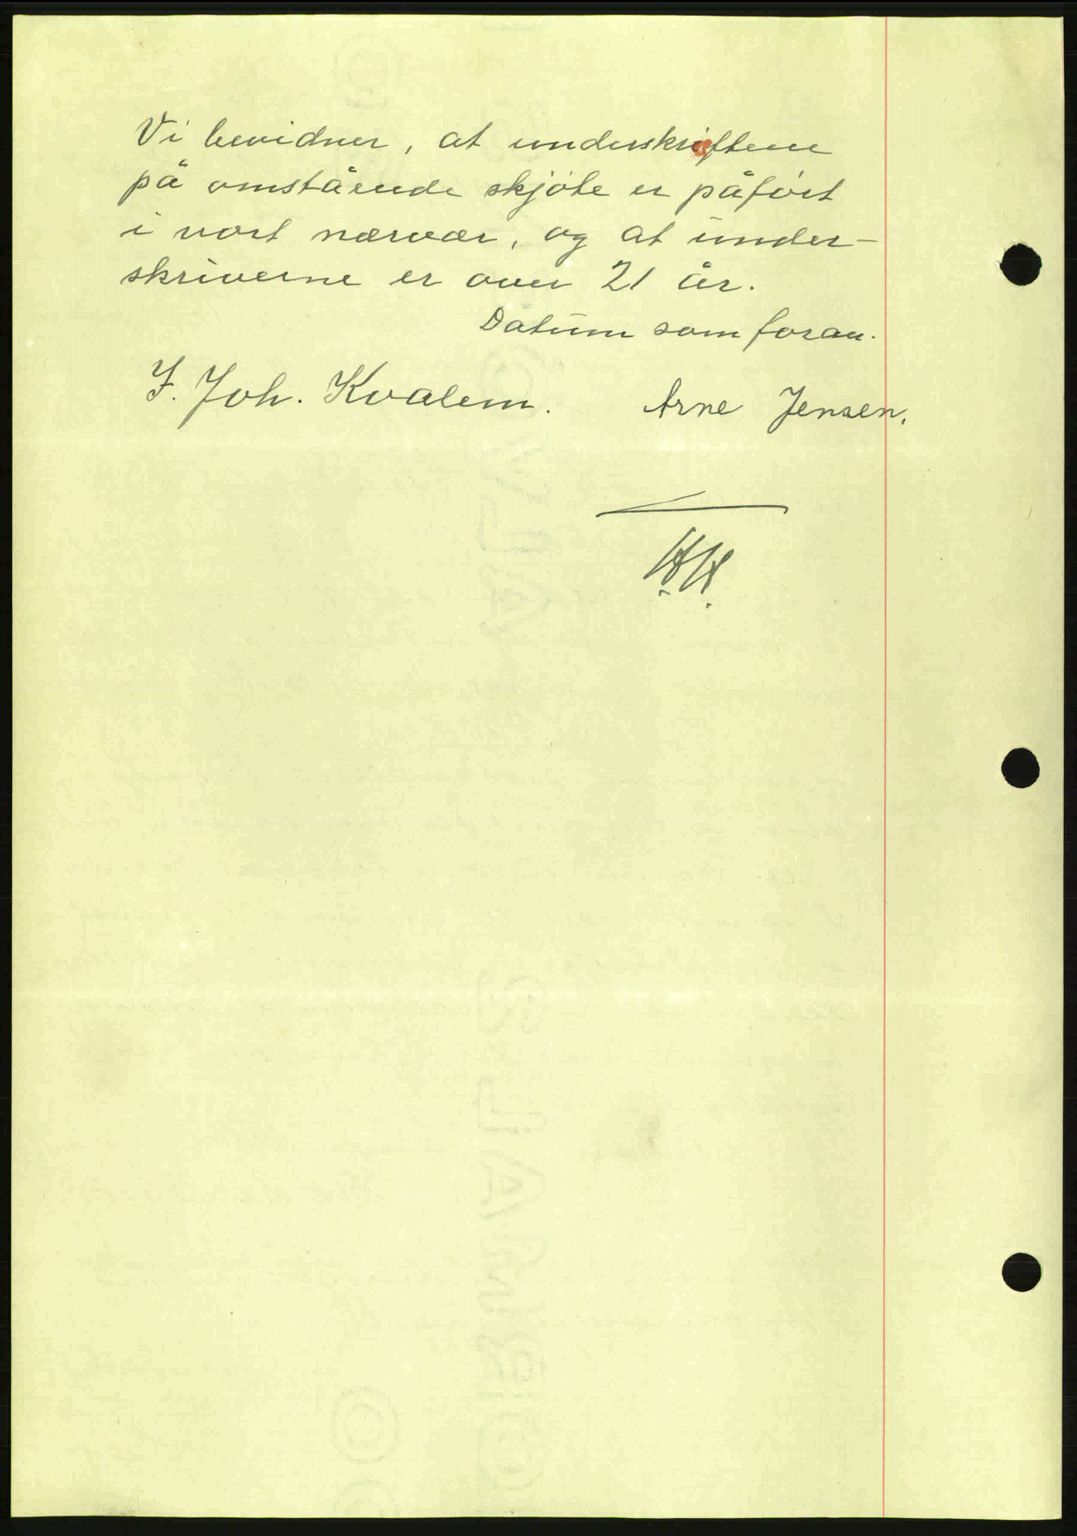 Vi bevidner, at underskriftene
på omstående skjøte er påført
i vort nærvær, og at under-
skriverne er over 21 år.
Datum som foran.
F. Joh. Kvalem. Arne Jensen.